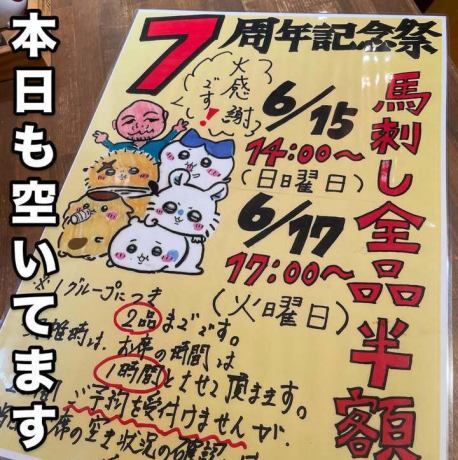 本日も空いてます
7周年記念祭
大感謝
です!
6/15
14:00〜
(日曜日)
6/17
17:00〜
(火曜日)
馬刺し全品半額
※1グループにつき
2品までです。
雑時は、お席の時間は
1時間とさせて頂きます。
ご予約を受付けませんが、
席の空き状況の確認